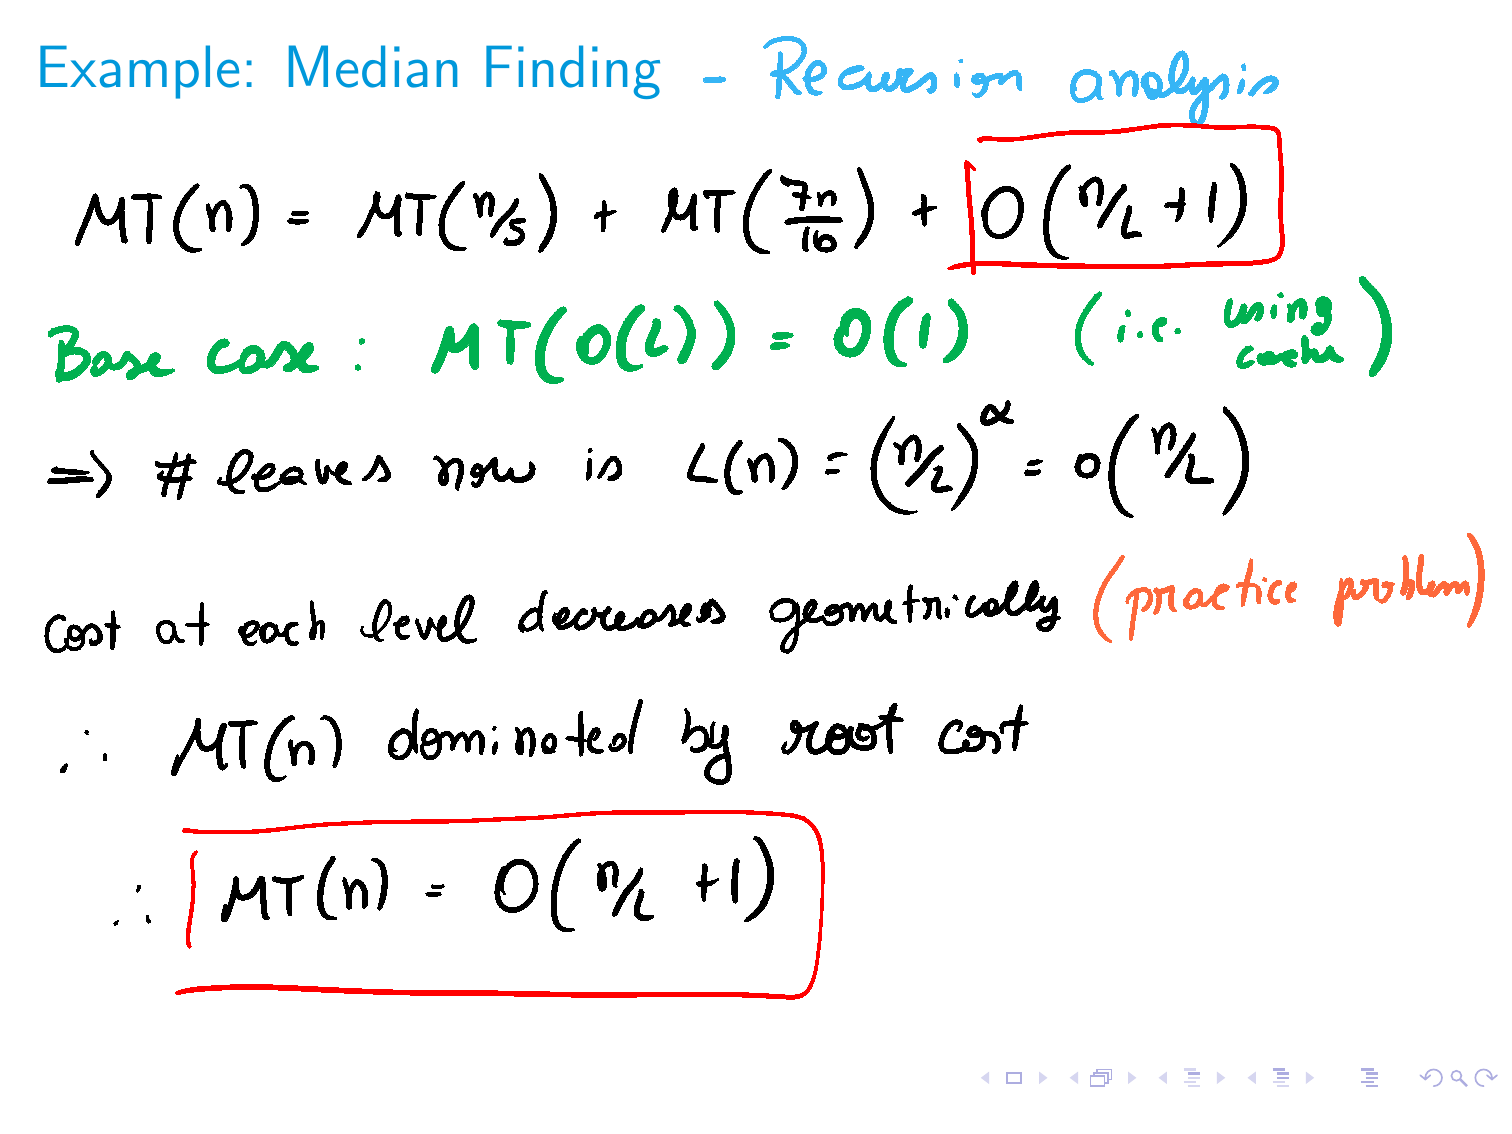 Example: Median Finding - Recursion analysis
MT(n) = MT(n/5) + MT(7n/10) + O(n/L + 1)
Base case : MT(O(L)) = O(1) (i.e. using cache)
=> # leaves now is L(n) = (n/L)^α = o(n/L)
cost at each level decreases geometrically (practice problem)
∴ MT(n) dominated by root cost
∴ MT(n) = O(n/L + 1)